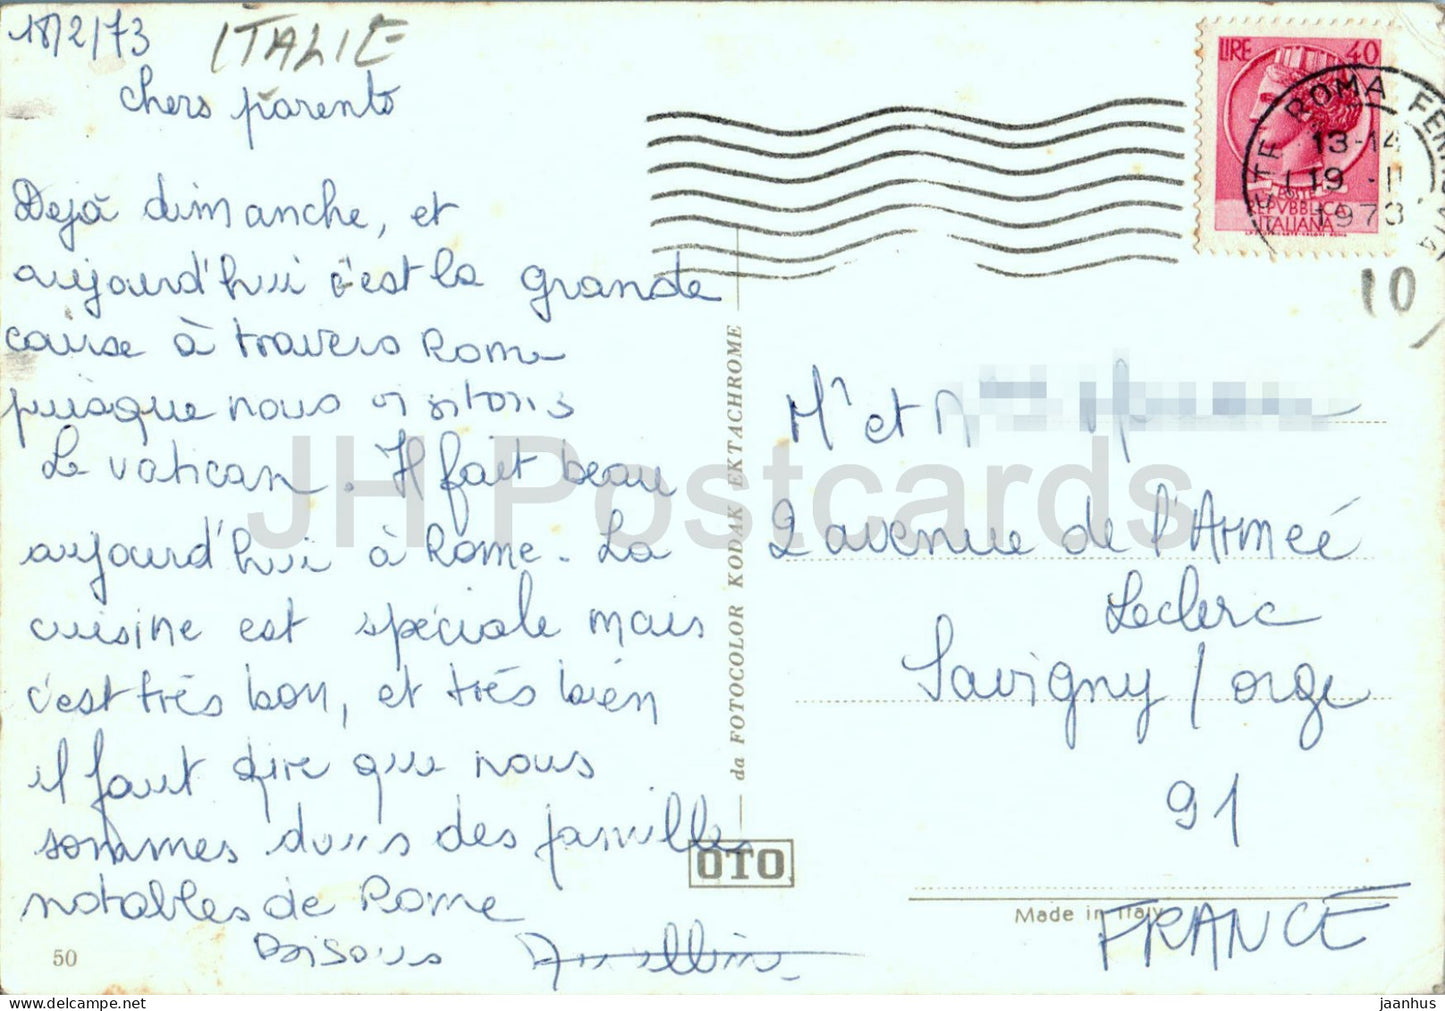 18/2/73 ITALIE
chers parents
Dejà dimanche, et
aujourd'hui c'est la grande
course à travers Rome
puisque nous visitons
Le Vatican. Il fait beau
aujourd'hui à Rome. La
cuisine est spéciale mais
c'est très bon, et très bien
il faut dire que nous
sommes dans des familles
notables de Rome
Baisous
50
LIRE 40
POSTE
REPVBBLICA
ITALIANA
ROMA FERROVIA
13-14
19 - II
1973
10
Mr et
2 avenue de l'Armeé
Leclerc
Savigny / orge
91
FRANCE
da FOTOCOLOR KODAK EKTACHROME
OTO
Made in Italy
JH Postcards
jaanhus